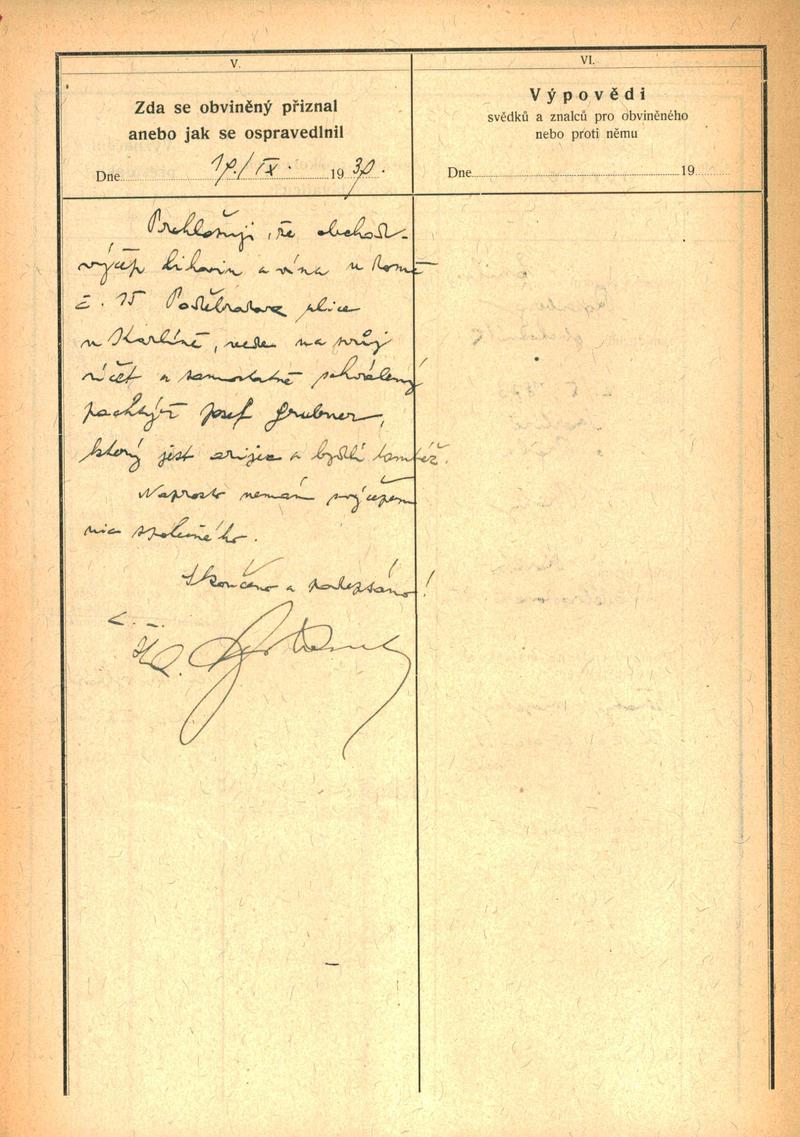 V.
Zda se obviněný přiznal
anebo jak se ospravedlnil
Dne 19
VI.
Výpovědi
svědků a znalců pro obviněného
nebo proti němu
Dne 19
Prohlašuji, že obchod-
výčep lihovin a vína v domě
č. 15 Poděbradova ulice
v Karlíně, vede na svůj
účet a samostatně schválený
pachtýř Josef Grubner,
který jest arijec a bydlí tamtéž.
Naprosto nemám s výčepem
nic společného.
Skončeno a podepsáno!